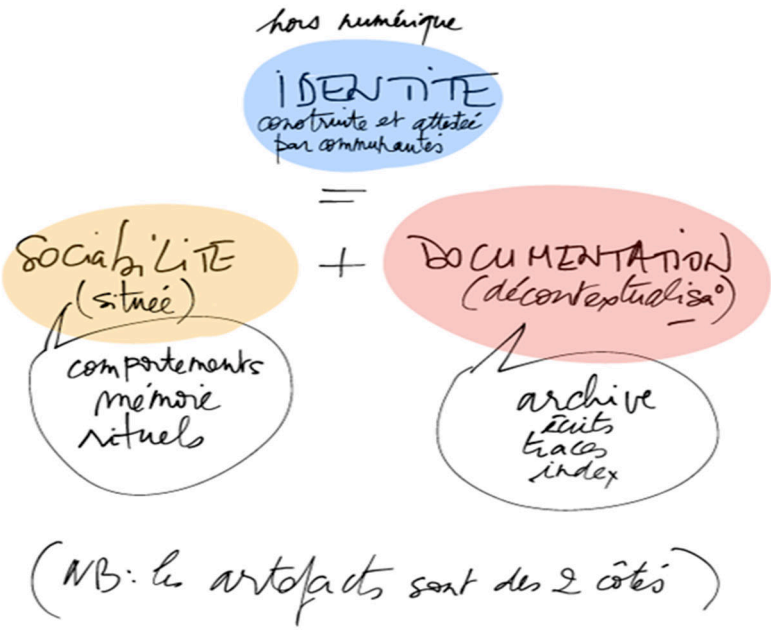 hors numérique
IDENTITE
construite et attestée
par communautés
=
SOCiabiLiTE + DOCUMENTATION
(située) (décontextualisa°)
comportements
mémoire
rituels
archive
écrits
traces
index
(NB: les artefacts sont des 2 côtés)